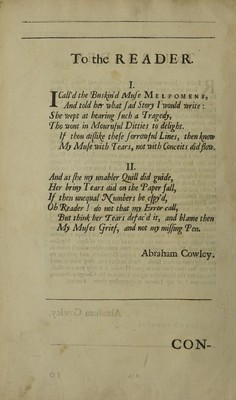 To the READER.
I.
I Call'd the Buskin'd Muse MELPOMENE,
And told her what sad Story I would write:
She wept at hearing such a Tragedy,
Tho wont in Mournful Ditties to delight.
If thou dislike these sorrowful Lines, then know
My Muse with Tears, not with Conceits did flow.
II.
And as she my unabler Quill did guide,
Her briny Tears did on the Paper fall,
If then unequal Numbers be espy'd,
Oh Reader! do not that my Error call,
But think her Tears defac'd it, and blame then
My Muses Grief, and not my missing Pen.
Abraham Cowley.
CON-